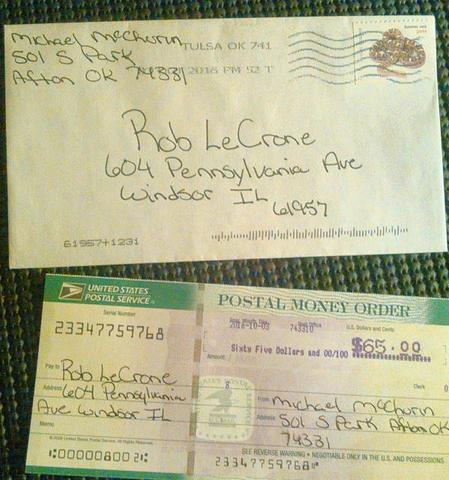 Michael McChurin
501 S Park
Afton OK 74331
TULSA OK 741
2016 PM 52 T
Rob LeCrone
604 Pennsylvania Ave
Windsor IL
61957
61957+1231
UNITED STATES
POSTAL SERVICE®
Serial Number
23347759768
Pay to Rob LeCrone
Address 604 Pennsylvania
Ave Windsor IL
Memo
⑆000008002⑆
POSTAL MONEY ORDER
Post Office
U.S. Dollars and Cents
2016-10-03 743310 $65.00
Amount
Sixty Five Dollars and 00/100
Clerk 0
From Michael McChurin
Address 501 S Park Afton OK
74331
SEE REVERSE WARNING • NEGOTIABLE ONLY IN THE U.S. AND POSSESSIONS
23347759768⑈